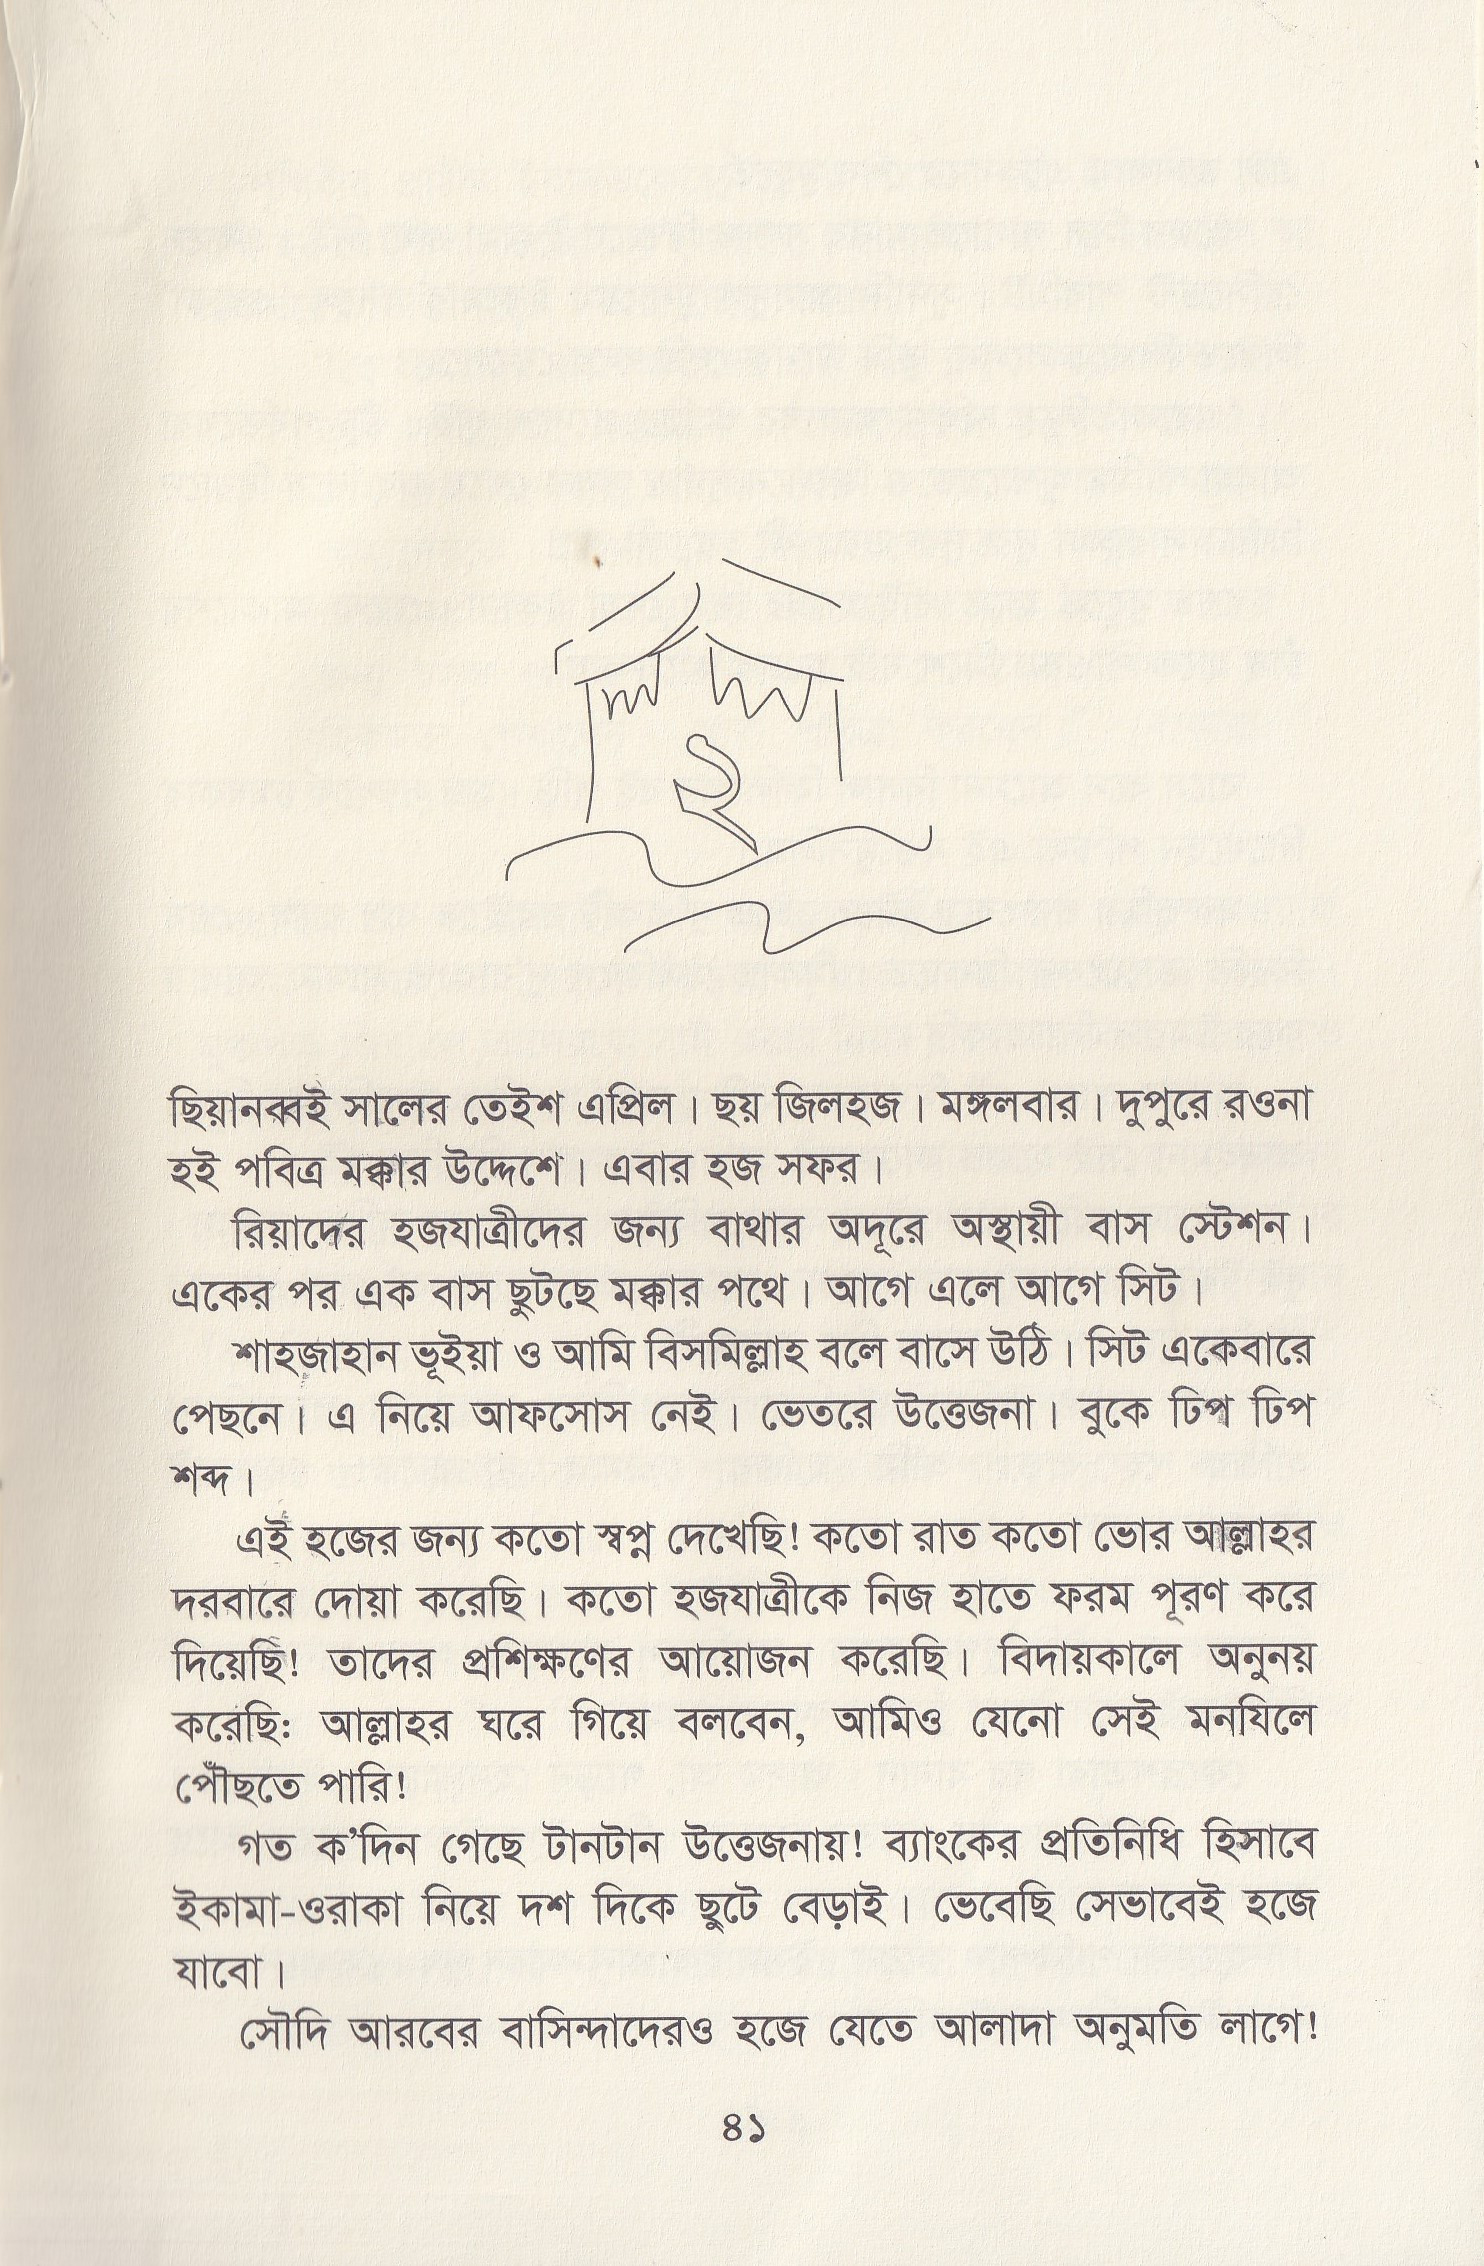 ২
ছিয়ানব্বই সালের তেইশ এপ্রিল। ছয় জিলহজ। মঙ্গলবার। দুপুরে রওনা
হই পবিত্র মক্কার উদ্দেশে। এবার হজ সফর।
রিয়াদের হজযাত্রীদের জন্য বাথার অদূরে অস্থায়ী বাস স্টেশন।
একের পর এক বাস ছুটছে মক্কার পথে। আগে এলে আগে সিট।
শাহজাহান ভূইয়া ও আমি বিসমিল্লাহ বলে বাসে উঠি। সিট একেবারে
পেছনে। এ নিয়ে আফসোস নেই। ভেতরে উত্তেজনা। বুকে ঢিপ ঢিপ
শব্দ।
এই হজের জন্য কতো স্বপ্ন দেখেছি! কতো রাত কতো ভোর আল্লাহর
দরবারে দোয়া করেছি। কতো হজযাত্রীকে নিজ হাতে ফরম পূরণ করে
দিয়েছি! তাদের প্রশিক্ষণের আয়োজন করেছি। বিদায়কালে অনুনয়
করেছি: আল্লাহর ঘরে গিয়ে বলবেন, আমিও যেনো সেই মনযিলে
পৌঁছতে পারি!
গত ক’দিন গেছে টানটান উত্তেজনায়! ব্যাংকের প্রতিনিধি হিসাবে
ইকামা-ওরাকা নিয়ে দশ দিকে ছুটে বেড়াই। ভেবেছি সেভাবেই হজে
যাবো।
সৌদি আরবের বাসিন্দাদেরও হজে যেতে আলাদা অনুমতি লাগে!
৪১